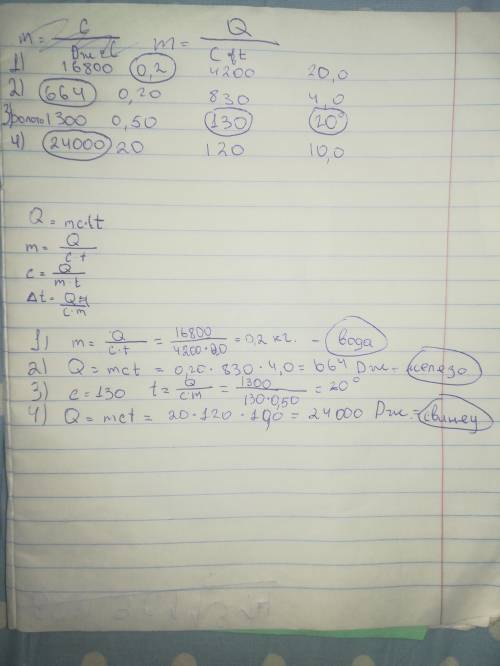 m = C / Дж·C   m = Q / C Δt
1) 16800 0,2 4200 20,0
2) 664 0,20 830 4,0
3) золото 1300 0,50 130 20°
4) 24000 20 120 10,0
Q = mc·Δt
m = Q / c t
c = Q / m·t
Δt = Q / c·m
1) m = Q / c·t = 16800 / 4200·20 = 0,2 кг. - вода
2) Q = mct = 0,20 · 830 · 4,0 = 664 Дж = железо
3) c = 130 t = Q / c·m = 1300 / 130·0,50 = 20°
4) Q = mct = 20 · 120 · 10,0 = 24000 Дж = свинец